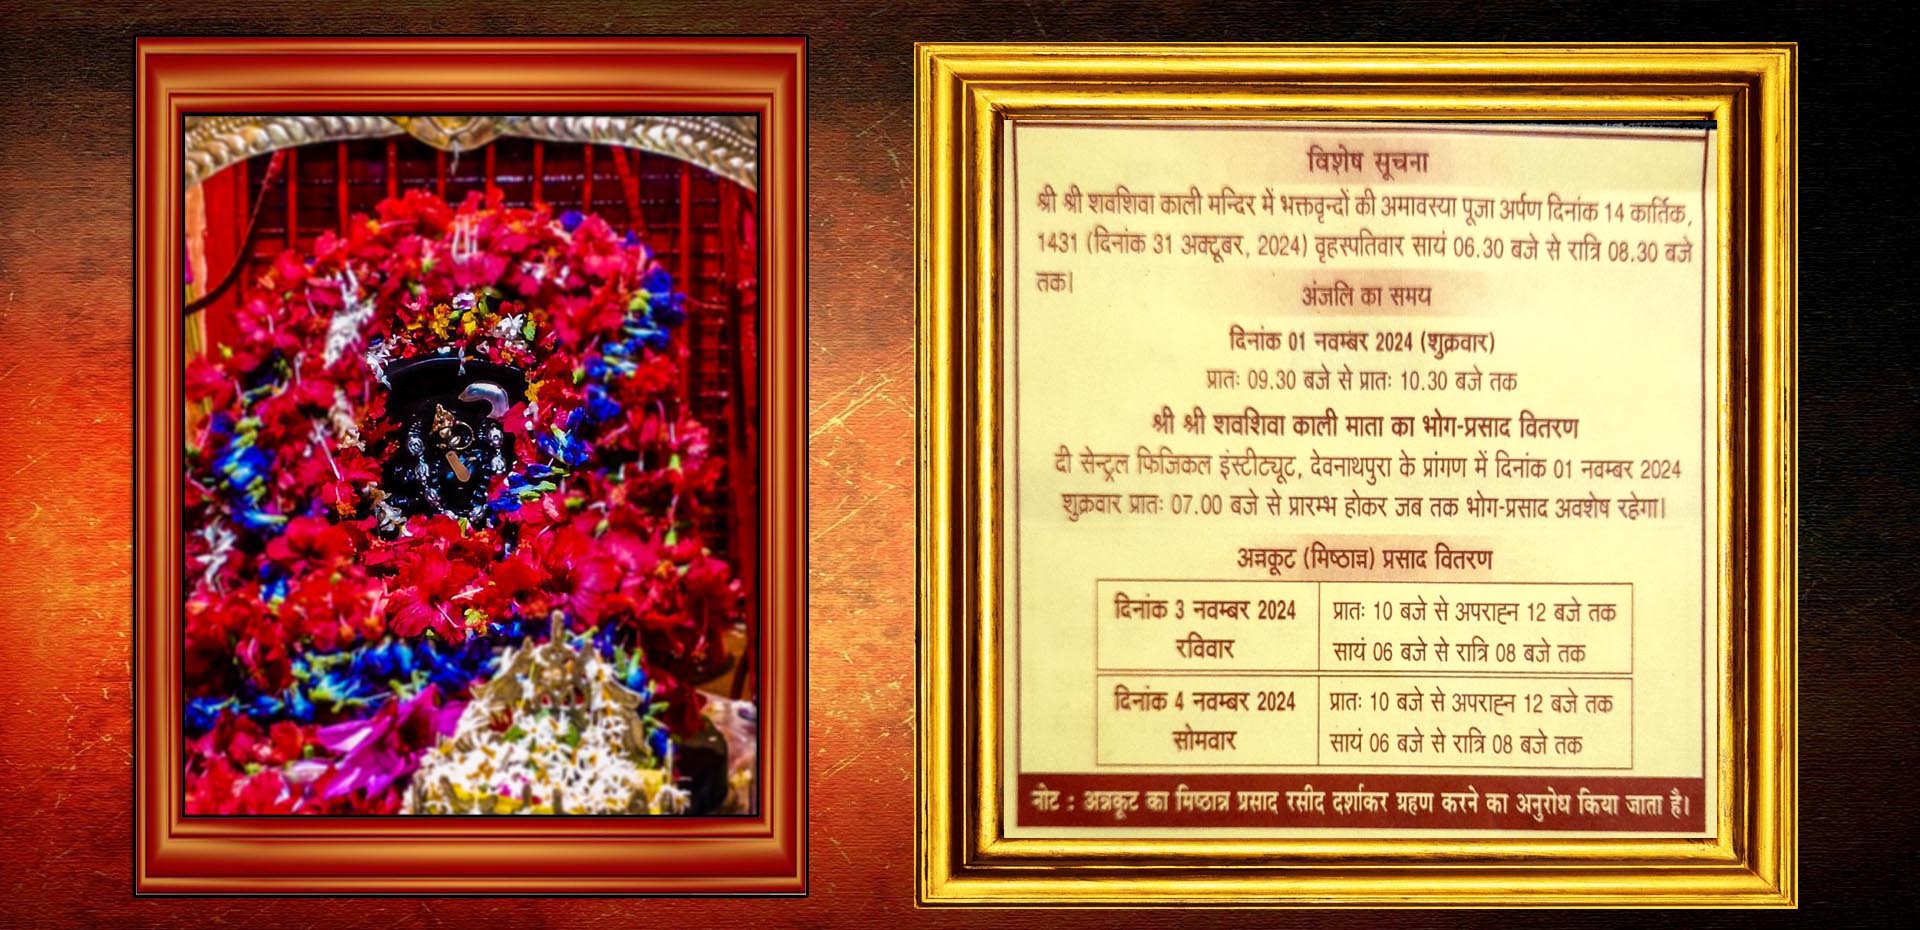 विशेष सूचना
श्री श्री शवशिवा काली मन्दिर में भक्तवृन्दों की अमावस्या पूजा अर्पण दिनांक 14 कार्तिक,
1431 (दिनांक 31 अक्टूबर, 2024) वृहस्पतिवार सायं 06.30 बजे से रात्रि 08.30 बजे
तक।
अंजलि का समय
दिनांक 01 नवम्बर 2024 (शुक्रवार)
प्रातः 09.30 बजे से प्रातः 10.30 बजे तक
श्री श्री शवशिवा काली माता का भोग-प्रसाद वितरण
दी सेन्ट्रल फिजिकल इंस्टीट्यूट, देवनाथपुरा के प्रांगण में दिनांक 01 नवम्बर 2024
शुक्रवार प्रातः 07.00 बजे से प्रारम्भ होकर जब तक भोग-प्रसाद अवशेष रहेगा।
अन्नकूट (मिष्ठान्न) प्रसाद वितरण
दिनांक 3 नवम्बर 2024 प्रातः 10 बजे से अपराह्न 12 बजे तक
रविवार सायं 06 बजे से रात्रि 08 बजे तक
दिनांक 4 नवम्बर 2024 प्रातः 10 बजे से अपराह्न 12 बजे तक
सोमवार सायं 06 बजे से रात्रि 08 बजे तक
नोट : अन्नकूट का मिष्ठान्न प्रसाद रसीद दर्शाकर ग्रहण करने का अनुरोध किया जाता है।